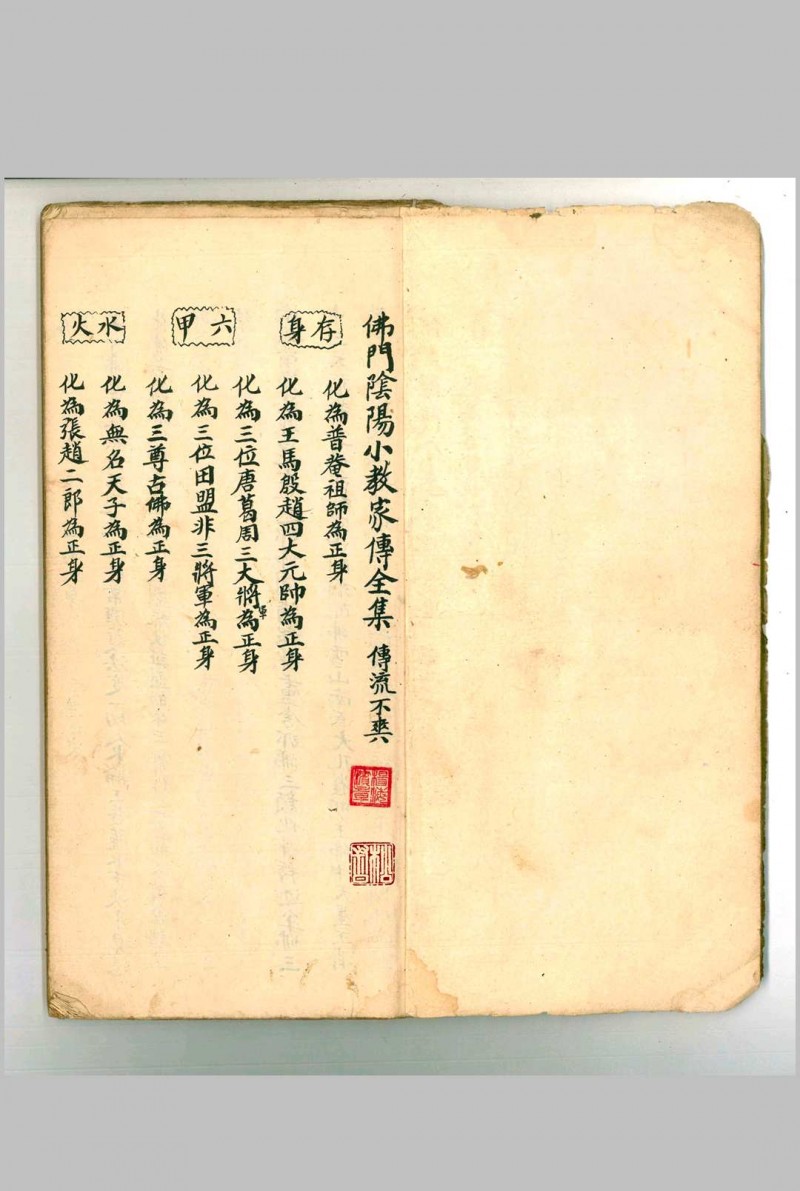 佛門陰陽小教家傳全集 傳流不爽
存身
化為普菴祖師為正身
化為王馬殷趙四大元帥為正身
化為三位唐葛周三大將軍為正身
六甲
化為三位田盟非三將軍為正身
化為三尊古佛為正身
水火
化為無名天子為正身
化為張趙二郎為正身